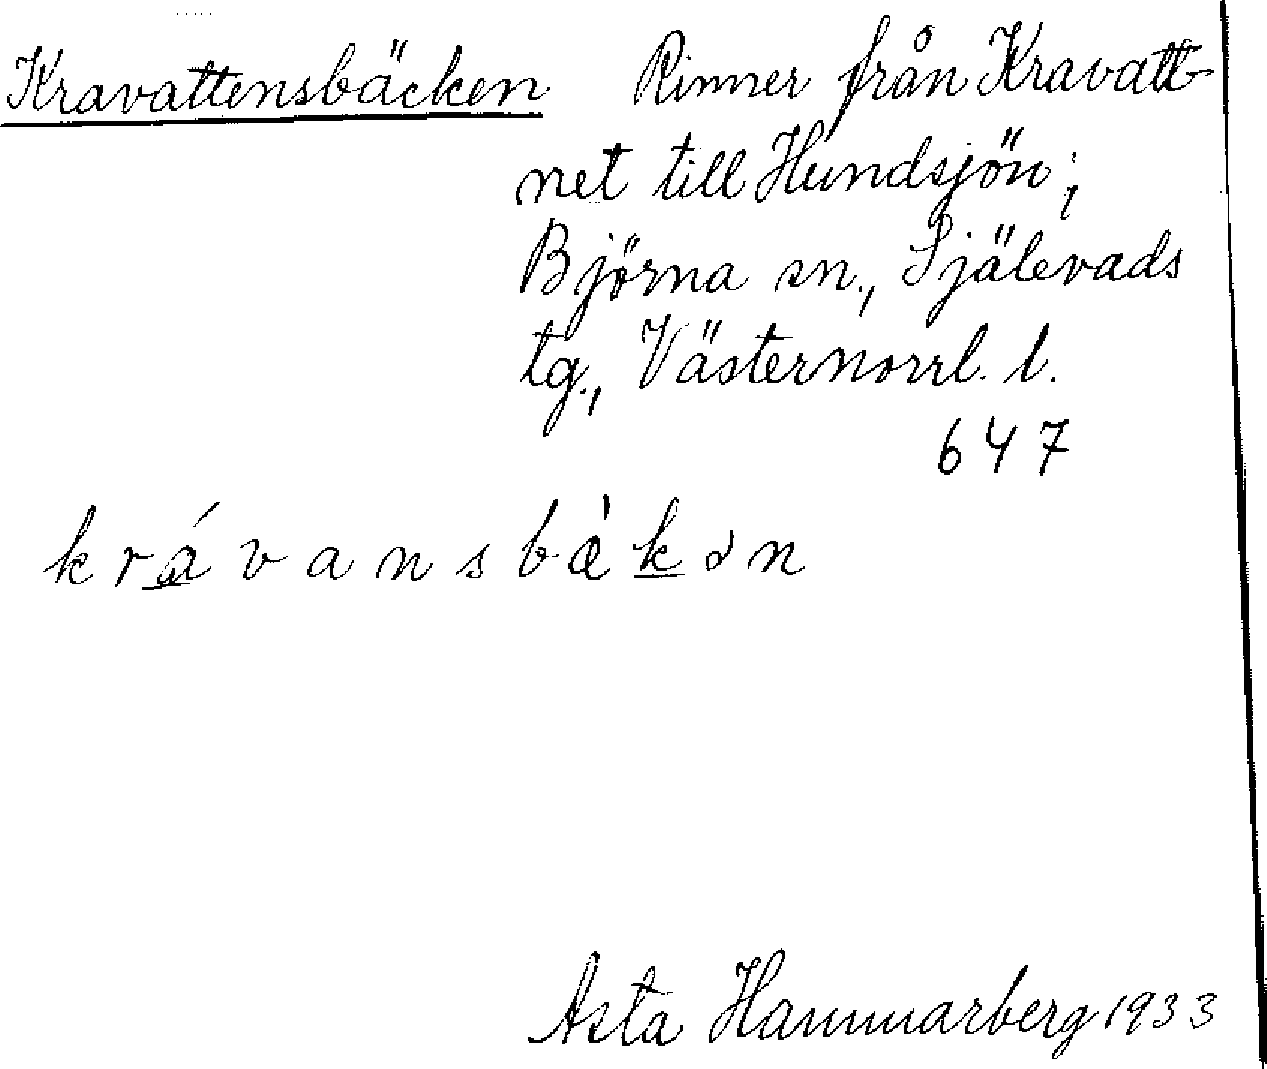 Kravattensbäcken Rinner från Kravatt-
net till Hundsjön;
Björna sn., Själevads
tg., Västernorrl. l.
647
krávansbæ̀kən
Asta Hammarberg 1933